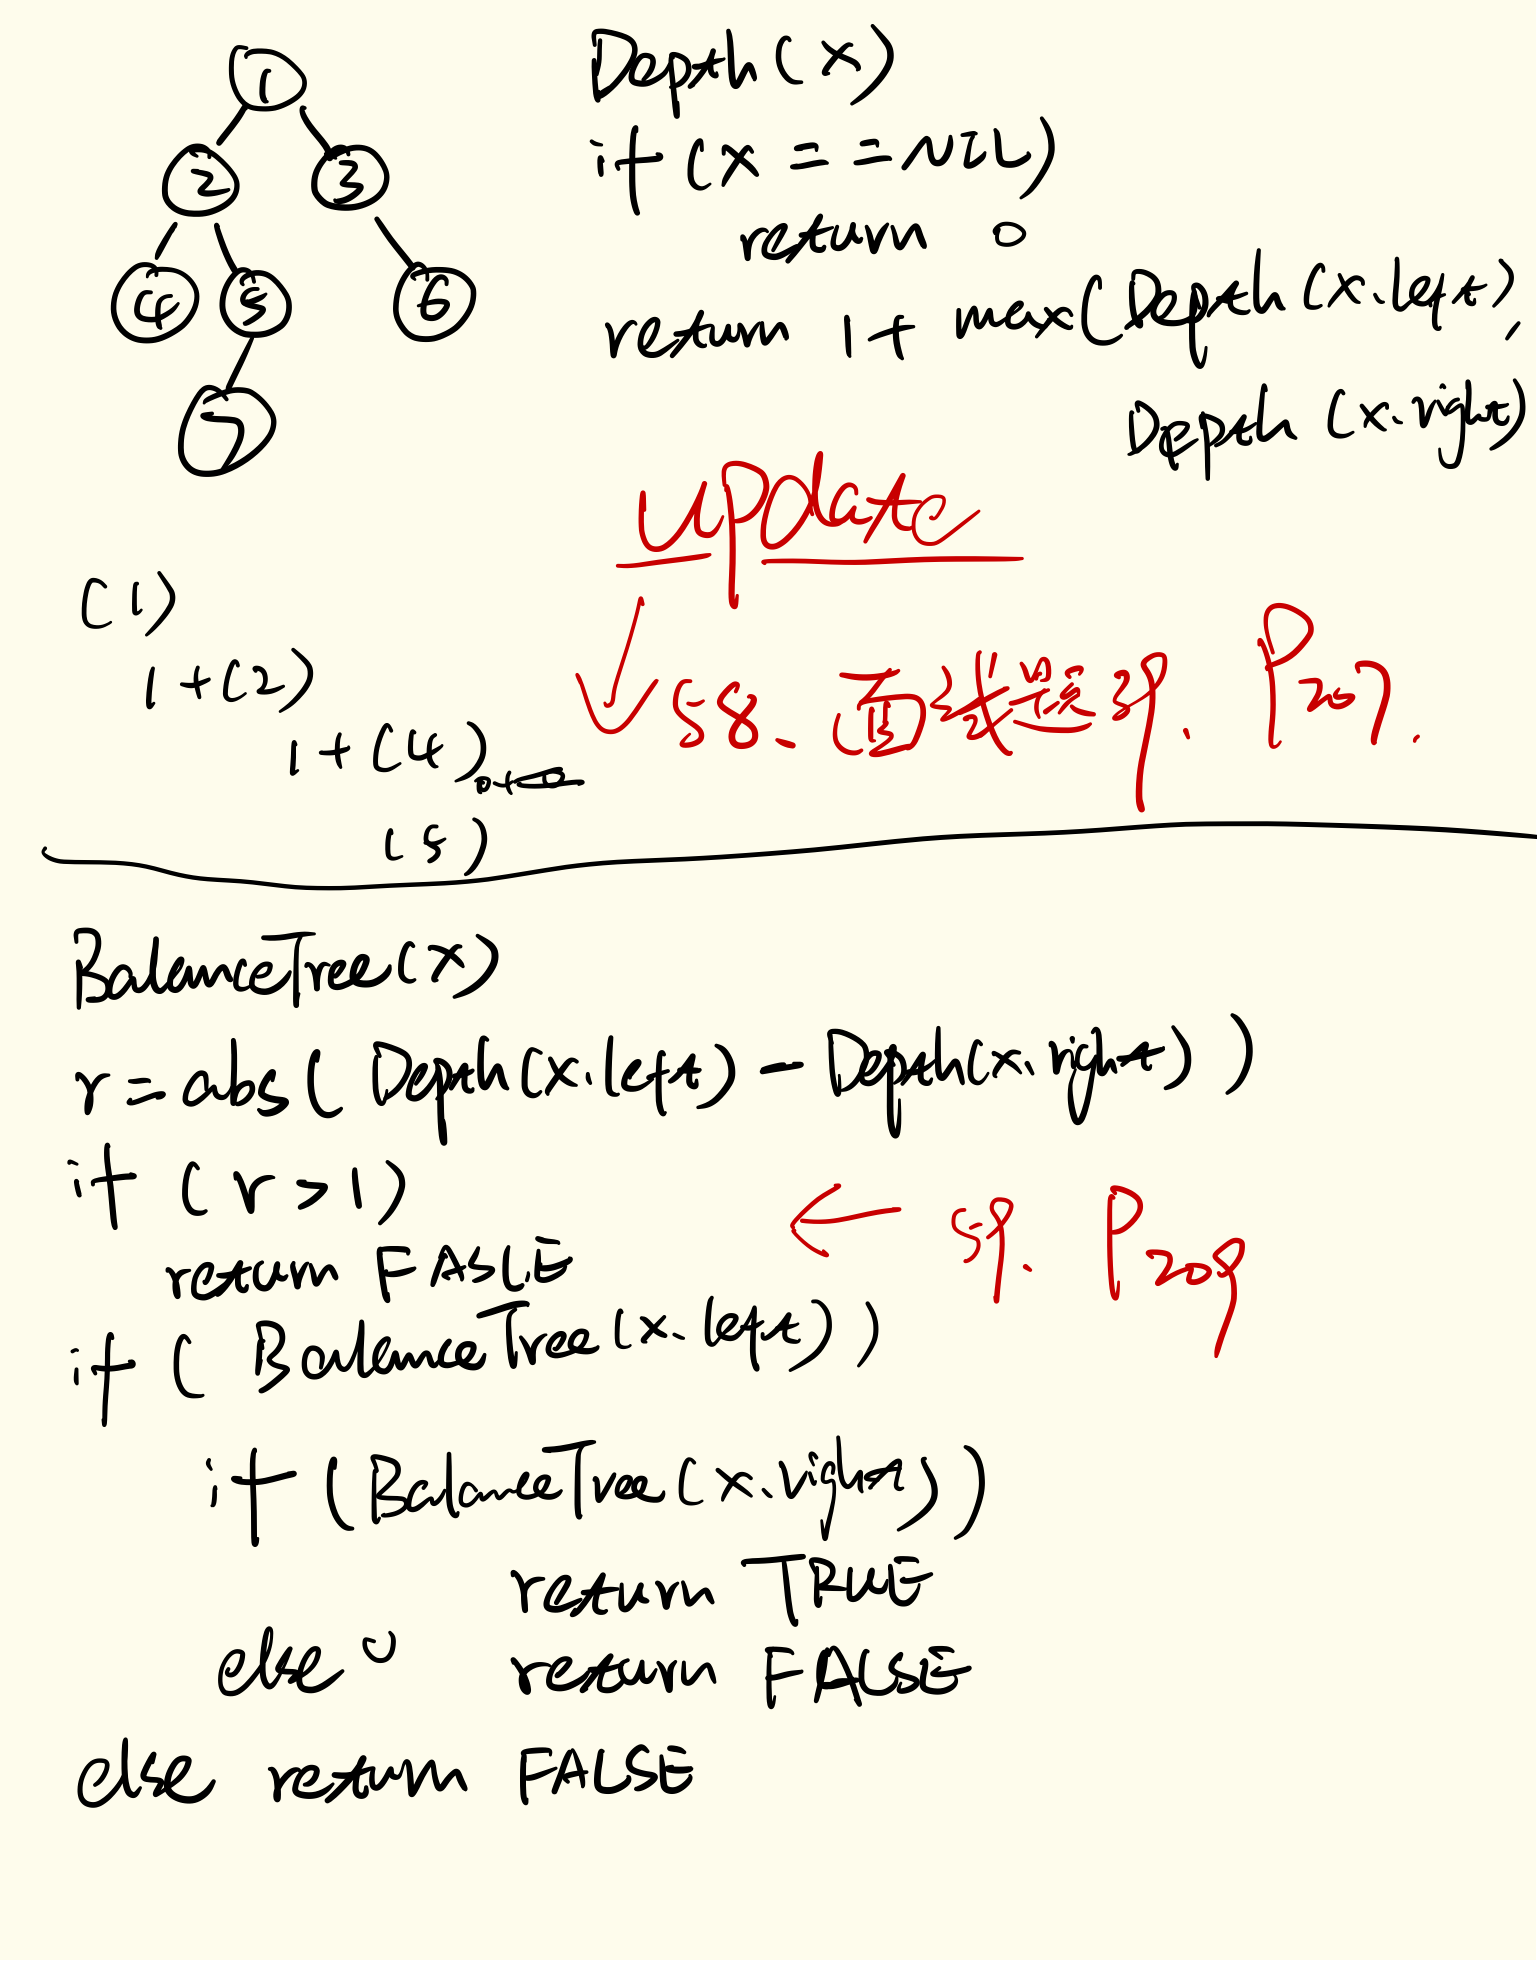 1
2 3
4 5 6
7
Depth(x)
if (x == NIL)
return 0
return 1+ max(Depth(x.left),
Depth(x.right)
update
58. 面试题39. P207.
(1)
1+(2)
1+(4)
(5)
BalanceTree(x)
r=abs(Depth(x.left) - Depth(x.right))
if (r>1)
return FASLE
59. P209
if (BalanceTree(x.left))
if (BalanceTree(x.right))
return TRUE
else return FALSE
else return FALSE